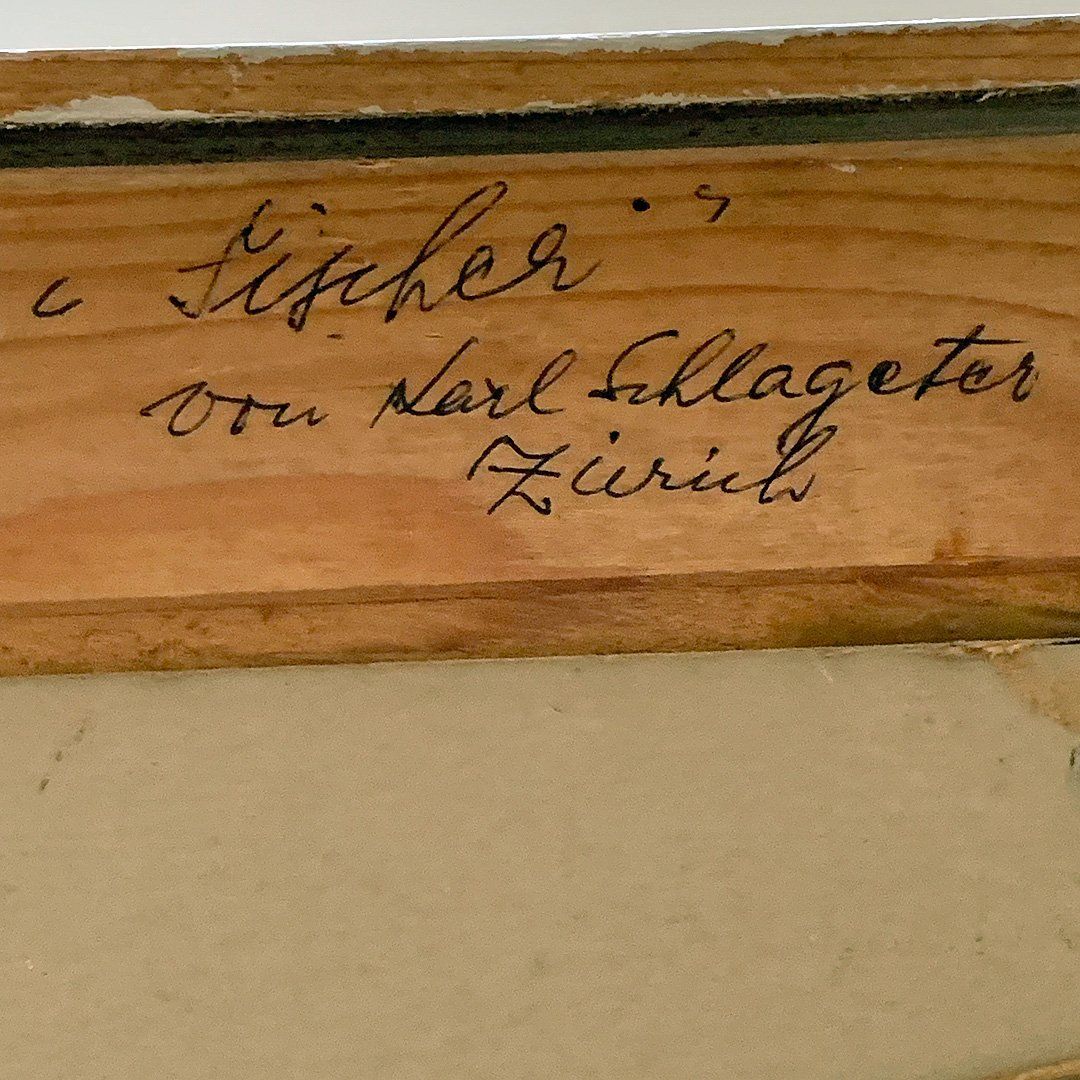 „Fischer"
von Karl Schlageter
Zürich